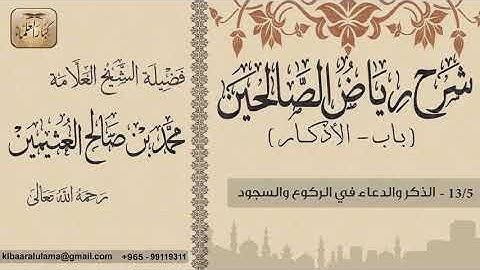 كبار العلماء
شرح رياض الصالحين
(باب - الأذكار)
13/5 - الذكر والدعاء في الركوع والسجود
فضيلة الشيخ العلامة
محمد بن صالح العثيمين
رحمه الله تعالى
kibaaralulama@gmail.com +965 - 99119311